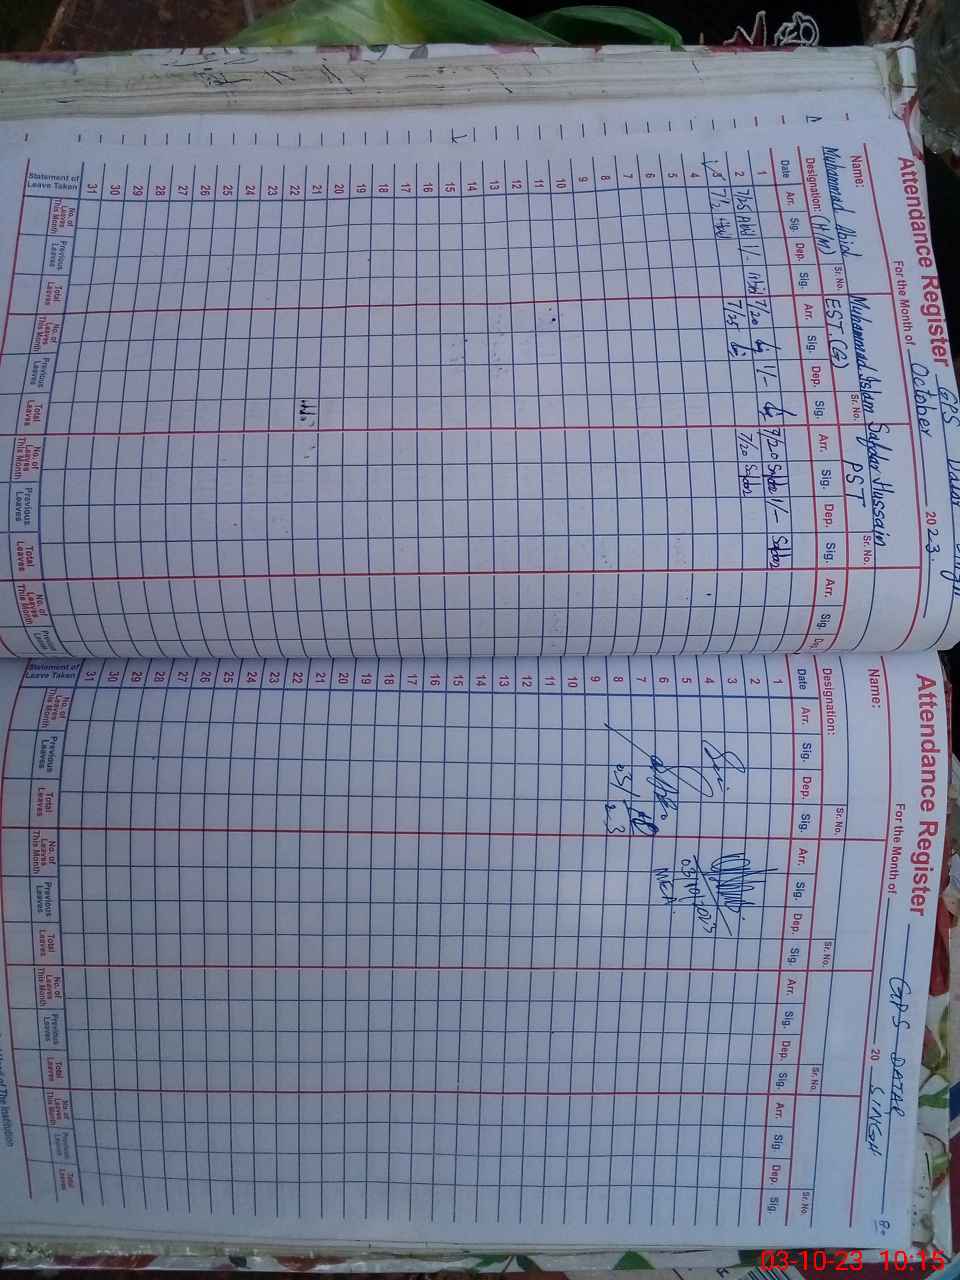 Attendance Register GPS Datar Singh
For the Month of October 2023.
Name: Sr. No. Sr. No. Sr. No.
Muhammad Abid Muhammad Islam Safdar Hussain
Designation: (H/M) EST (G) PST
Date Arr. Sig. Dep. Sig. Arr. Sig. Dep. Sig. Arr. Sig. Dep. Sig. Arr. Sig.
1 1/- 7/20 1/- 7/20 Safdar 1/- Safdar
2 7/25 Abid 7/25 7/20 Safdar
3 7/2
4
5
6
7
8
9
10
11
12
13
14
15
16
17
18
19
20
21
22
23
24
25
26
27
28
29
30
31
Statement of Leave Taken No. of Leaves This Month Previous Leaves Total Leaves No. of Leaves This Month Previous Leaves Total Leaves No. of Leaves This Month Previous Leaves Total Leaves No. of Leaves This Month Previous Leaves
Attendance Register GPS DATAR SINGH
For the Month of 20
Name: Sr. No. Sr. No. Sr. No. Sr. No.
Designation:
Date Arr. Sig. Dep. Sig. Arr. Sig. Dep. Sig. Arr. Sig. Dep. Sig. Arr. Sig. Dep. Sig.
1
2
3
4
5 03/10/2023
6 MEA
7
8
9
10
11
12
13
14
15
16
17
18
19
20
21
22
23
24
25
26
27
28
29
30
31
Statement of Leave Taken No. of Leaves This Month Previous Leaves Total Leaves No. of Leaves This Month Previous Leaves Total Leaves No. of Leaves This Month Previous Leaves Total Leaves No. of Leaves This Month Previous Leaves Total Leaves
Head of The Institution
03-10-23 10:15